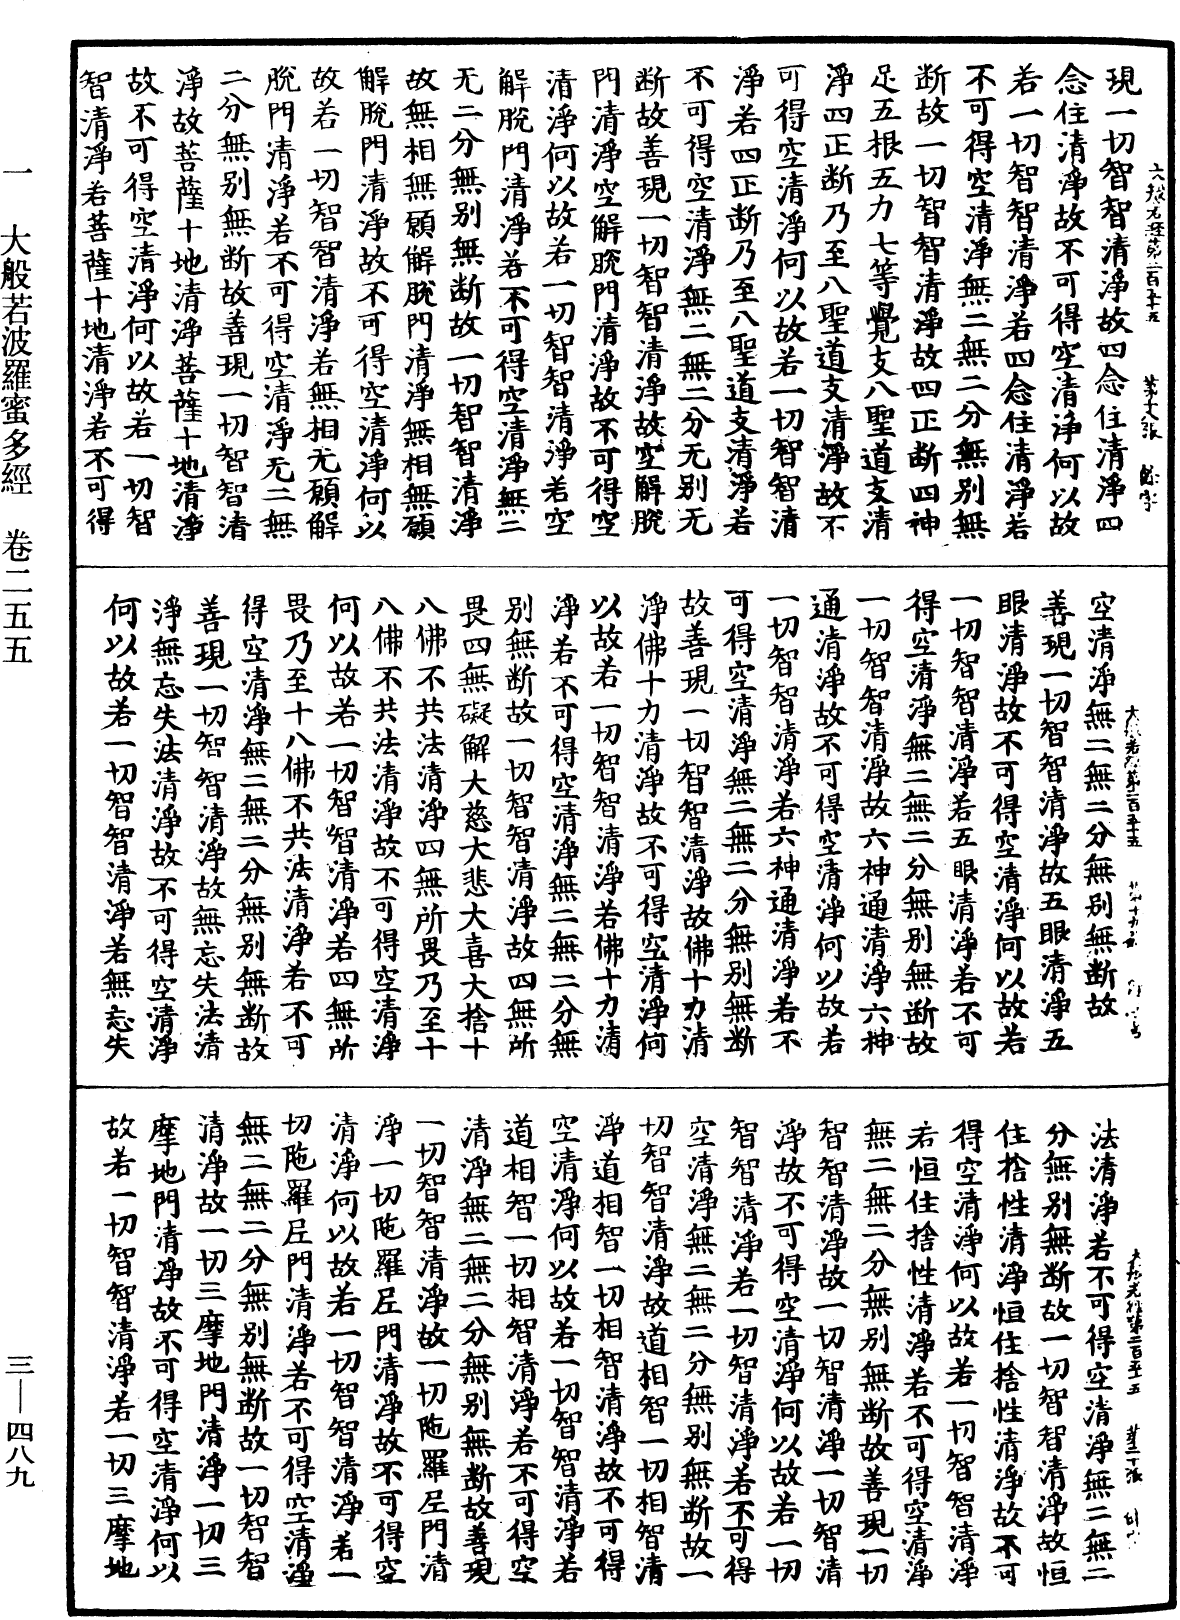 現一切智智清淨故四念住清淨四
念住清淨故不可得空清淨何以故
若一切智智清淨若四念住清淨若
不可得空清淨無二無二分無別無
断故一切智智清淨故四正断四神
足五根五力七等覺支八聖道支清
淨四正断乃至八聖道支清淨故不
可得空清淨何以故若一切智智清
淨若四正断乃至八聖道支清淨若
不可得空清淨無二無二分无別无
断故善現一切智智清淨故空解脫
門清淨空解脫門清淨故不可得空
清淨何以故若一切智智清淨若空
解脫門清淨若不可得空清淨無二
无二分無別無断故一切智智清淨
故無相無願解脫門清淨無相無願
解脫門清淨故不可得空清淨何以
故若一切智智清淨若無相无願解
脫門清淨若不可得空清淨无二無
二分無別無断故善現一切智智清
淨故菩薩十地清淨菩薩十地清淨
故不可得空清淨何以故若一切智
智清淨若菩薩十地清淨若不可得
空清淨無二無二分無別無断故
善現一切智智清淨故五眼清淨五
眼清淨故不可得空清淨何以故若
一切智智清淨若五眼清淨若不可
得空清淨無二無二分無別無断故
一切智智清淨故六神通清淨六神
通清淨故不可得空清淨何以故若
一切智智清淨若六神通清淨若不
可得空清淨無二無二分無別無断
故善現一切智智清淨故佛十力清
淨佛十力清淨故不可得空清淨何
以故若一切智智清淨若佛十力清
淨若不可得空清淨無二無二分無
別無断故一切智智清淨故四無所
畏四無礙解大慈大悲大喜大捨十
八佛不共法清淨四無所畏乃至十
八佛不共法清淨故不可得空清淨
何以故若一切智智清淨若四無所
畏乃至十八佛不共法清淨若不可
得空清淨無二無二分無別無断故
善現一切智智清淨故無忘失法清
淨無忘失法清淨故不可得空清淨
何以故若一切智智清淨若無忘失
法清淨若不可得空清淨無二無二
分無別無断故一切智智清淨故恒
住捨性清淨恒住捨性清淨故不可
得空清淨何以故若一切智智清淨
若恒住捨性清淨若不可得空清淨
無二無二分無別無断故善現一切
智智清淨故一切智清淨一切智清
淨故不可得空清淨何以故若一切
智智清淨若一切智清淨若不可得
空清淨無二無二分無別無断故一
切智智清淨故道相智一切相智清
淨道相智一切相智清淨故不可得
空清淨何以故若一切智智清淨若
道相智一切相智清淨若不可得空
清淨無二無二分無別無断故善現
一切智智清淨故一切陁羅尼門清
淨一切陁羅尼門清淨故不可得空
清淨何以故若一切智智清淨若一
切陁羅尼門清淨若不可得空清淨
無二無二分無別無断故一切智智
清淨故一切三摩地門清淨一切三
摩地門清淨故不可得空清淨何以
故若一切智智清淨若一切三摩地
一 大般若波羅蜜多經 卷二五五
三—四八九